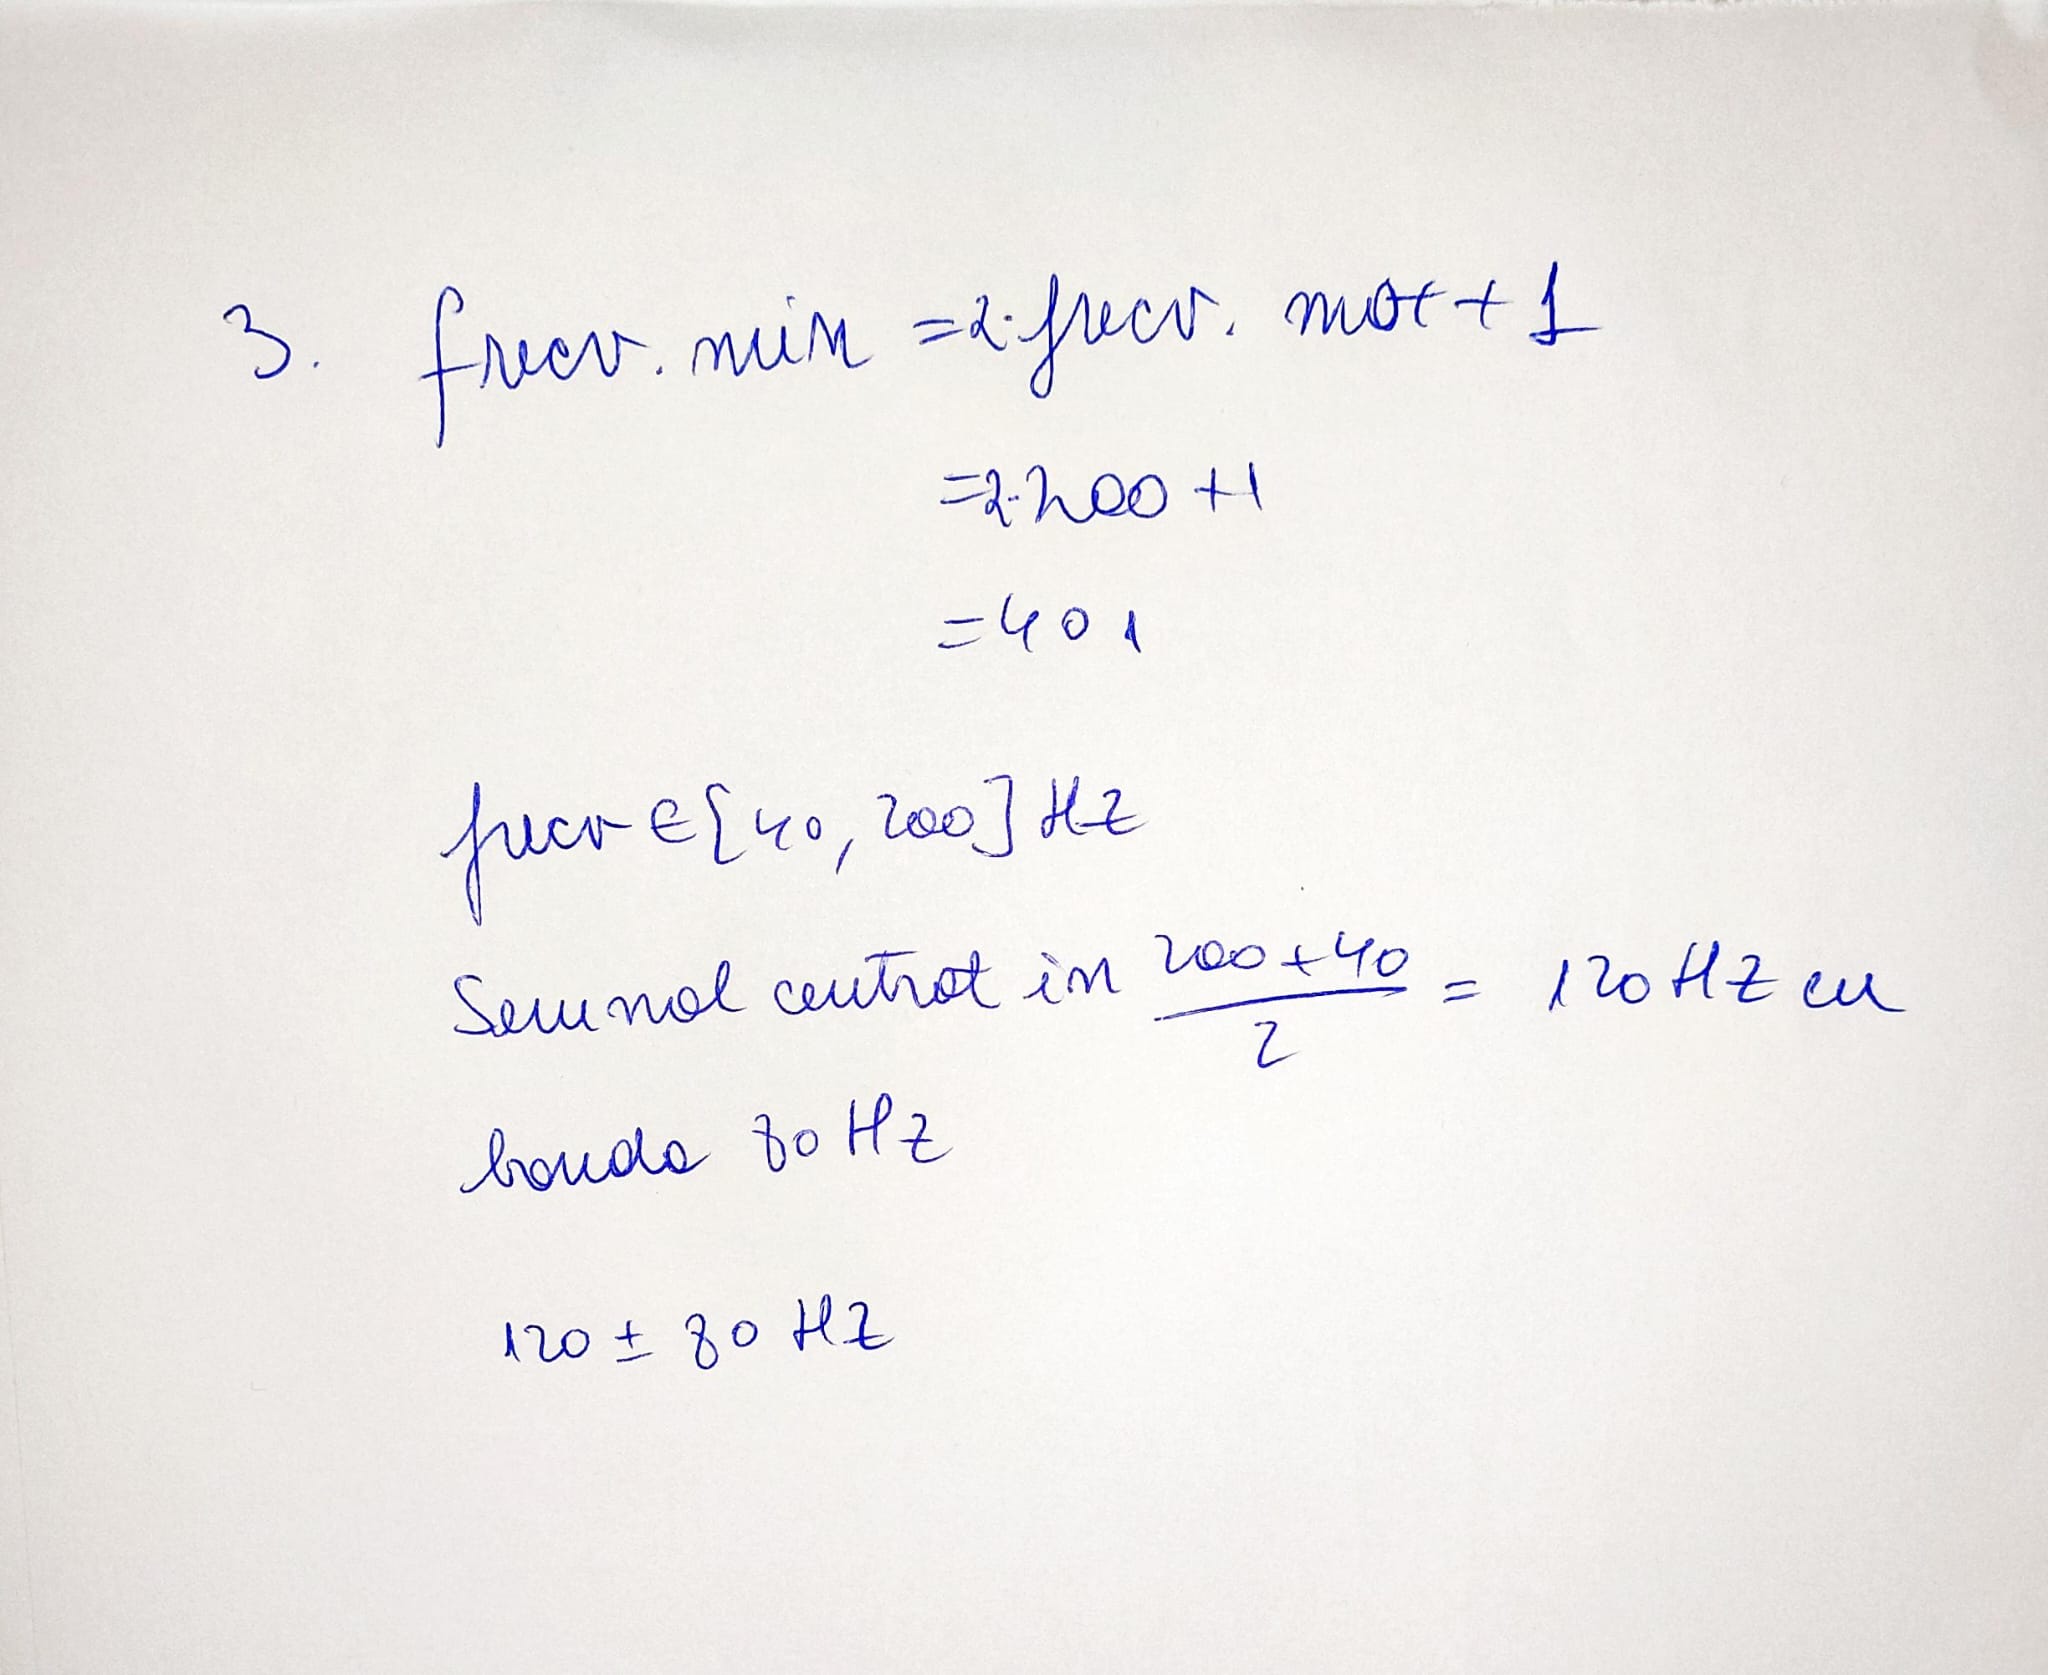 3. frecv. min = 2·frecv. max + 1
= 2·200 + 1
= 401
frecv ∈ [40, 200] Hz
Semnal centrat în (200+40)/2 = 120 Hz cu
banda 80 Hz
120 ± 80 Hz